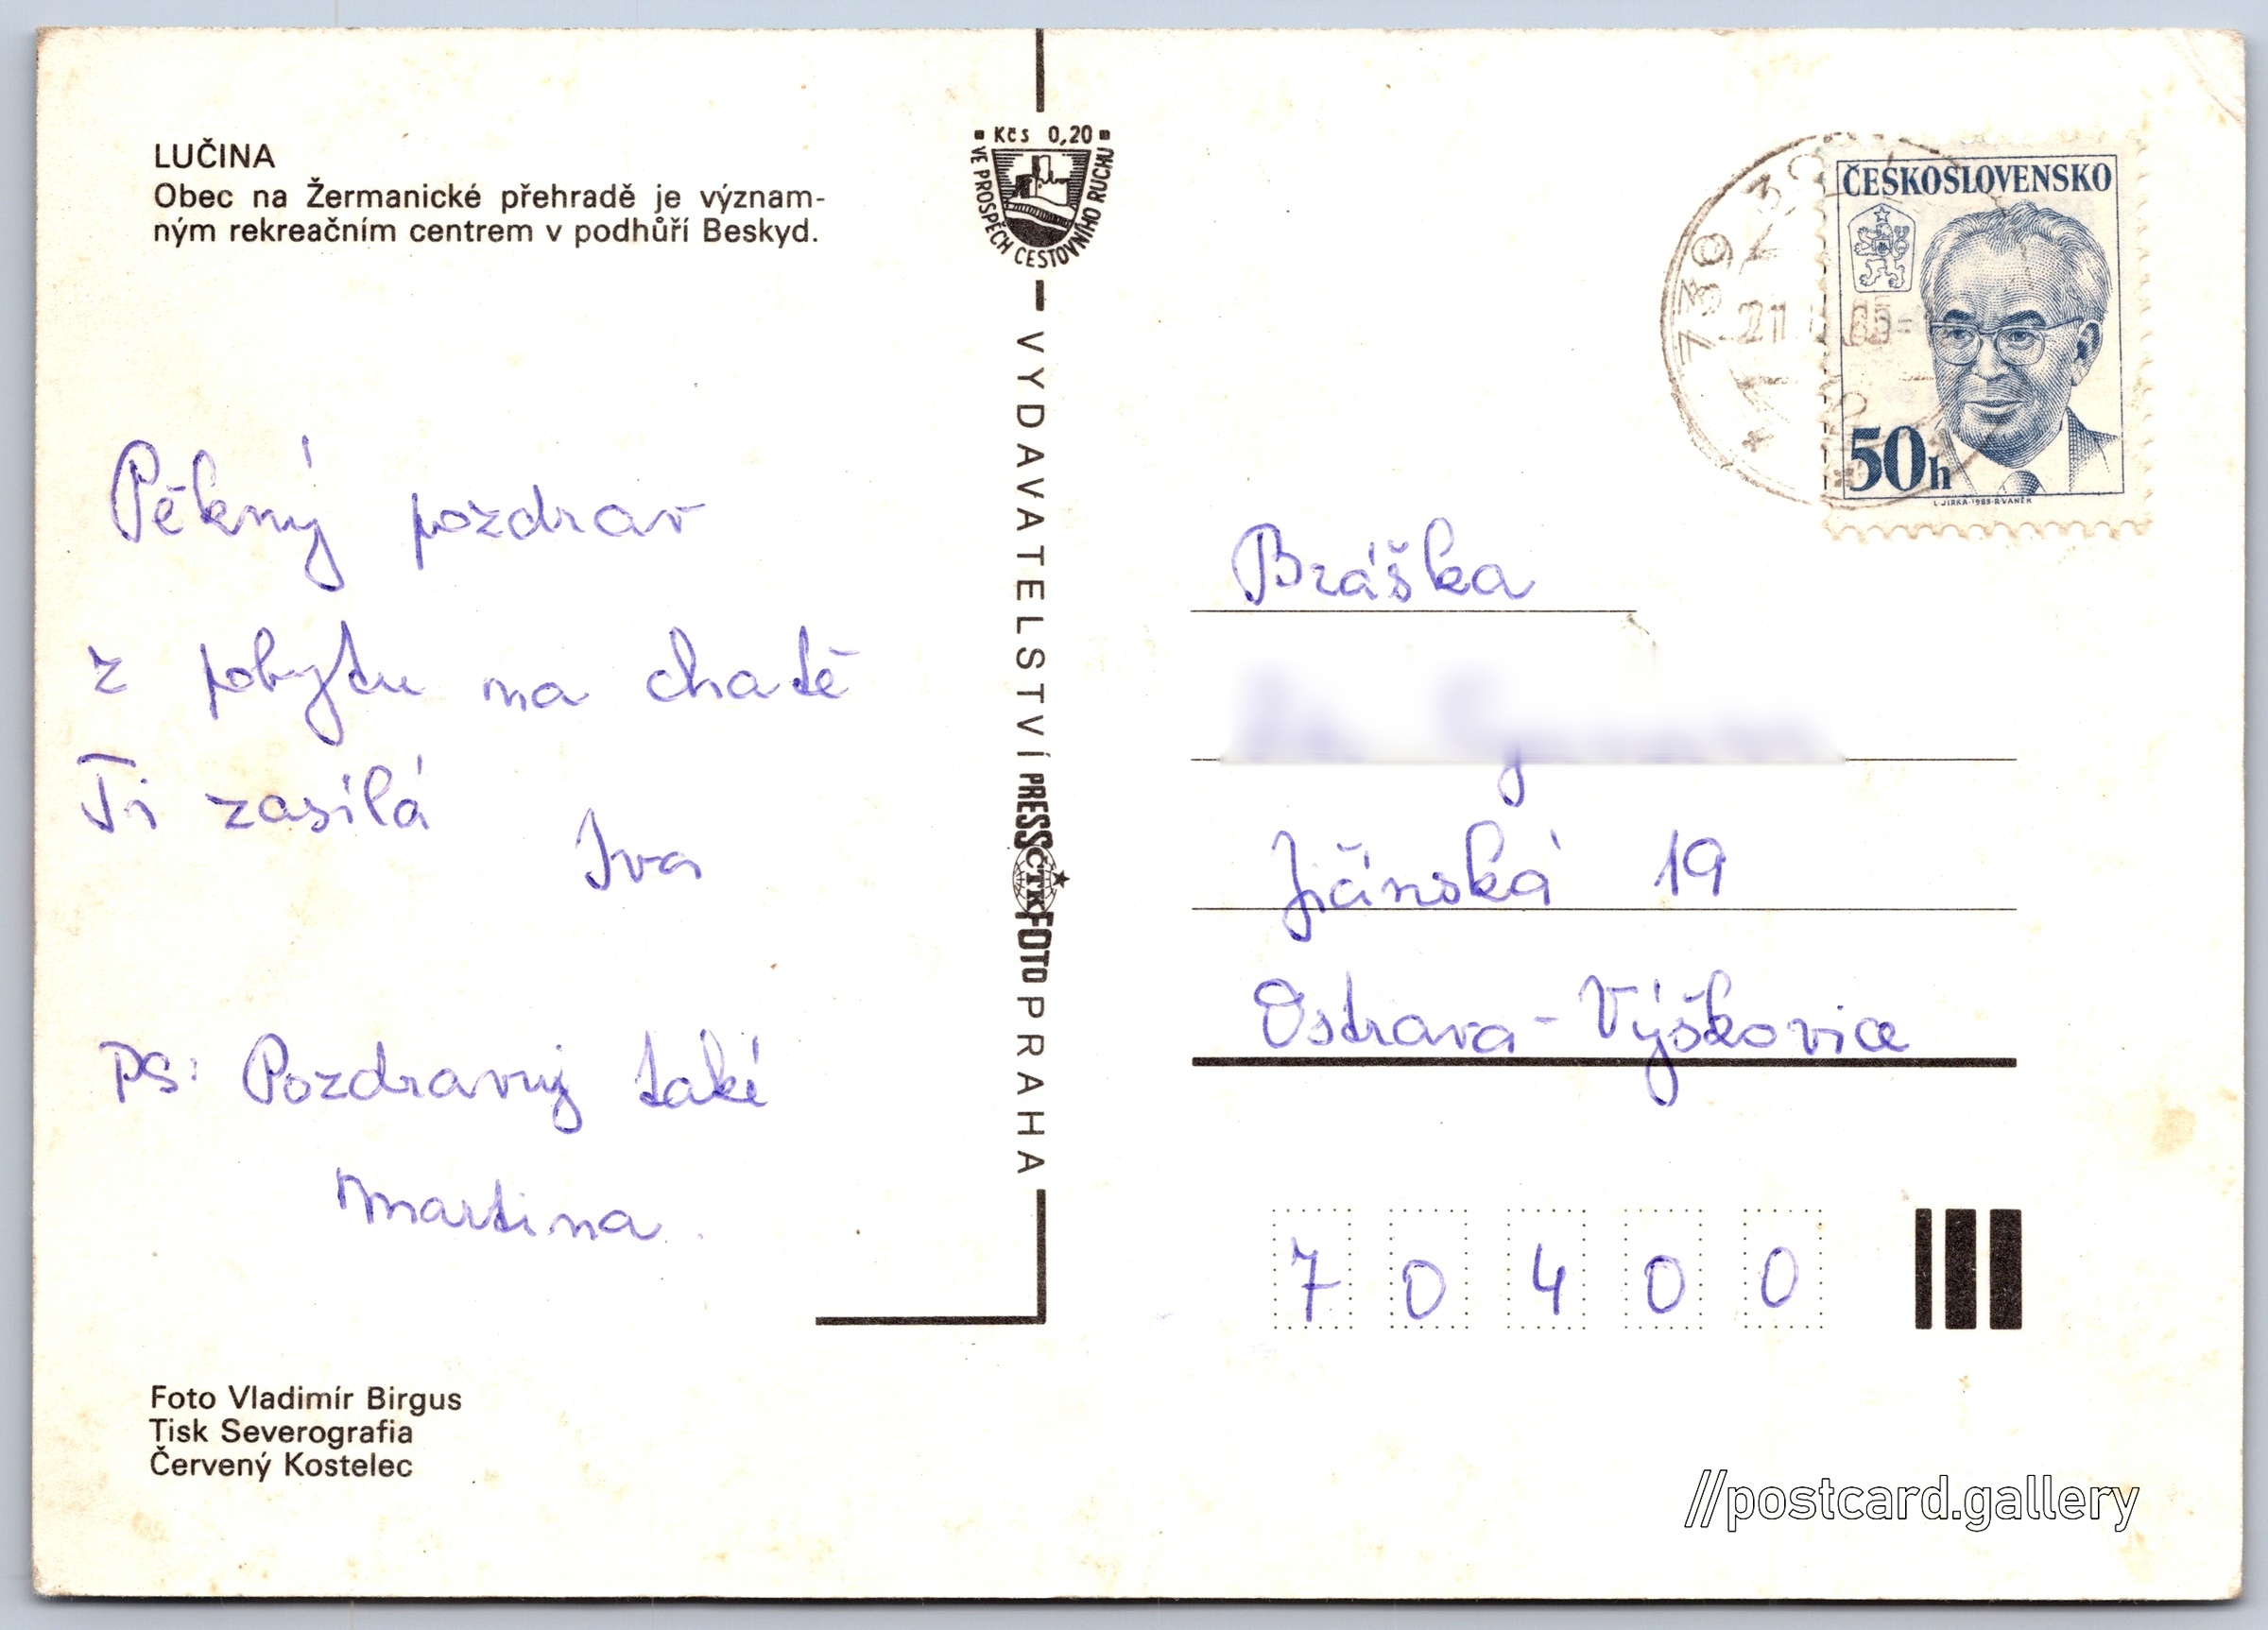 LUČINA
Obec na Žermanické přehradě je význam-
ným rekreačním centrem v podhůří Beskyd.
Pěkný pozdrav
z pobytu na chatě
Ti zasílá
Iva
PS: Pozdravuj také
Martina.
Foto Vladimír Birgus
Tisk Severografia
Červený Kostelec
Kčs 0,20
VE PROSPĚCH CESTOVNÍHO RUCHU
VYDAVATELSTVÍ PRESSFOTO PRAHA
ČTK
739 3
21 85
ČESKOSLOVENSKO
50h
L·JIRKA·1983·R·VANĚK
Bráška
Jičínská 19
Ostrava-Výškovice
7 0 4 0 0
//postcard.gallery